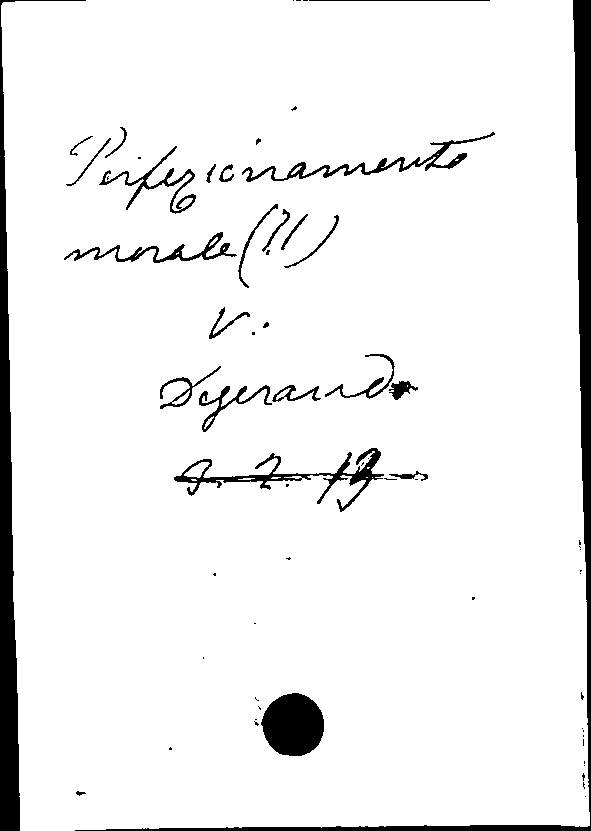 Perfezionamento
morale (Il)
V.
Degerando
3. 2. 13